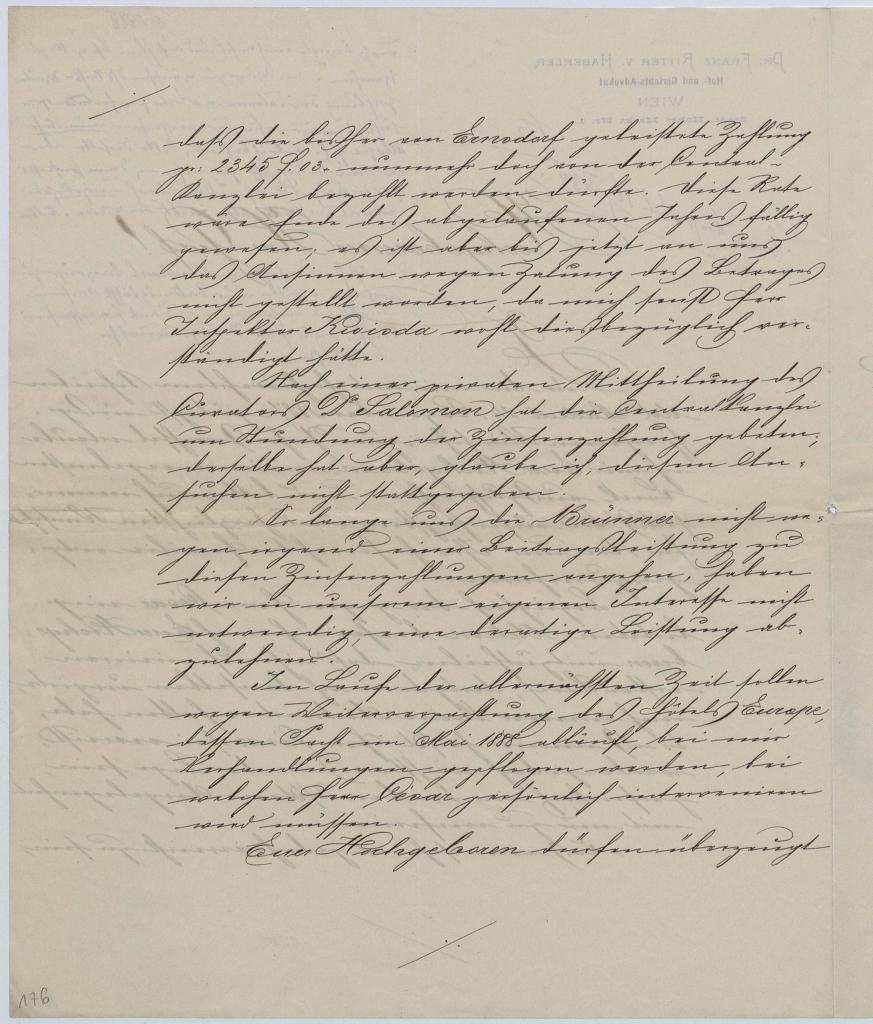 ./.
daß die bisher von Ernsdorf geleistete Zahlung
pr: 2345 f. 03. nunmehr doch von der Central-
Kanzlei bezahlt werden dürfte. Diese Rate
wäre Ende des abgelaufenen Jahres fällig
gewesen; es ist aber bis jetzt an uns
das Ansinnen wegen Zalung des Betrages
nicht gestellt worden, da mich sonst Herr
Inspektor Kwisda wohl diesbezüglich ver-
ständigt hätte.
Nach einer privaten Mittheilung des
Curators Dr Salomon hat die Centralkanzlei
um Stundung der Zinsenzahlung gebeten;
derselbe hat aber, glaube ich, diesem An-
suchen nicht stattgegeben.
So lange uns die Brünner nicht we-
gen irgend einer Beitragsleistung zu
diesen Zinsenzahlungen angehen, haben
wir in unserem eigenen Interesse nicht
notwendig, eine derartige Leistung ab-
zulehnen.
Im Laufe der allernächsten Zeit sollen
wegen Weiterverpachtung des Hôtels Europe,
dessen Pacht im Mai 1888 abläuft, bei mir
Verhandlungen gepflogen werden, bei
welchen Herr César persönlich interveniren
wird müssen.
Euer Hochgeboren dürfen überzeugt
./.
176